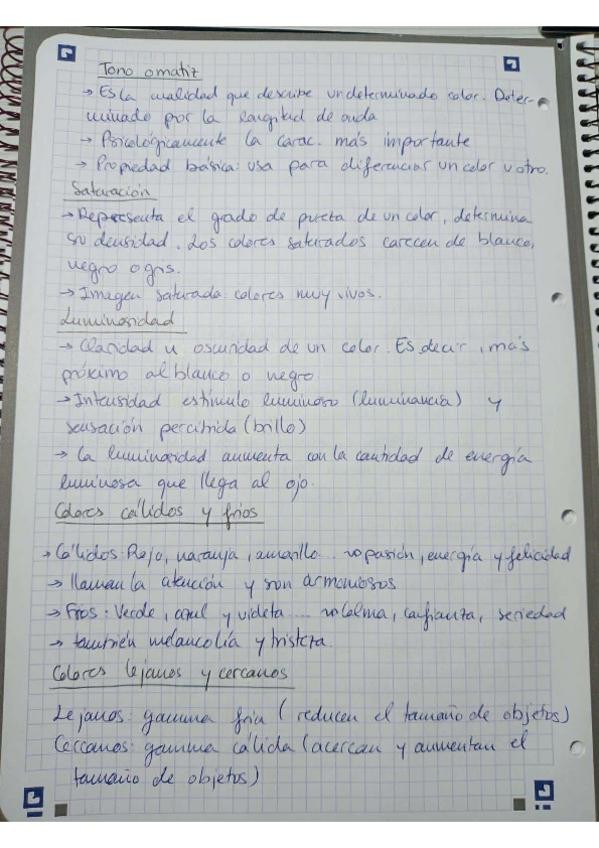 Tono o matiz
→ Es la cualidad que describe un determinado color. Deter-
minado por la longitud de onda
→ Psicológicamente la carac. más importante
→ Propiedad básica: usa para diferenciar un color u otro.
Saturación
→ Representa el grado de pureza de un color, determina
su densidad. Los colores saturados carecen de blanco,
negro o gris.
→ Imagen saturada: colores muy vivos.
Luminosidad
→ Claridad u oscuridad de un color. Es decir, más
próximo al blanco o negro.
→ Intensidad estímulo luminoso (luminancia) y
sensación percibida (brillo)
→ La luminosidad aumenta con la cantidad de energía
luminosa que llega al ojo.
Colores cálidos y fríos
→ Cálidos: Rojo, naranja, amarillo... → pasión, energía y felicidad
→ llaman la atención y son armoniosos
→ Fríos: Verde, azul y violeta .... → calma, confianza, seriedad
→ también melancolía y tristeza.
Colores lejanos y cercanos
Lejanos: gamma fría (reducen el tamaño de objetos)
Cercanos: gamma cálida (acercan y aumentan el
tamaño de objetos)